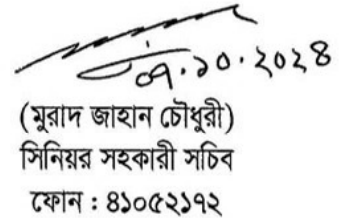 ০৭.১০.২০২৪
(মুরাদ জাহান চৌধুরী)
সিনিয়র সহকারী সচিব
ফোন : ৪১০৫২১৭২